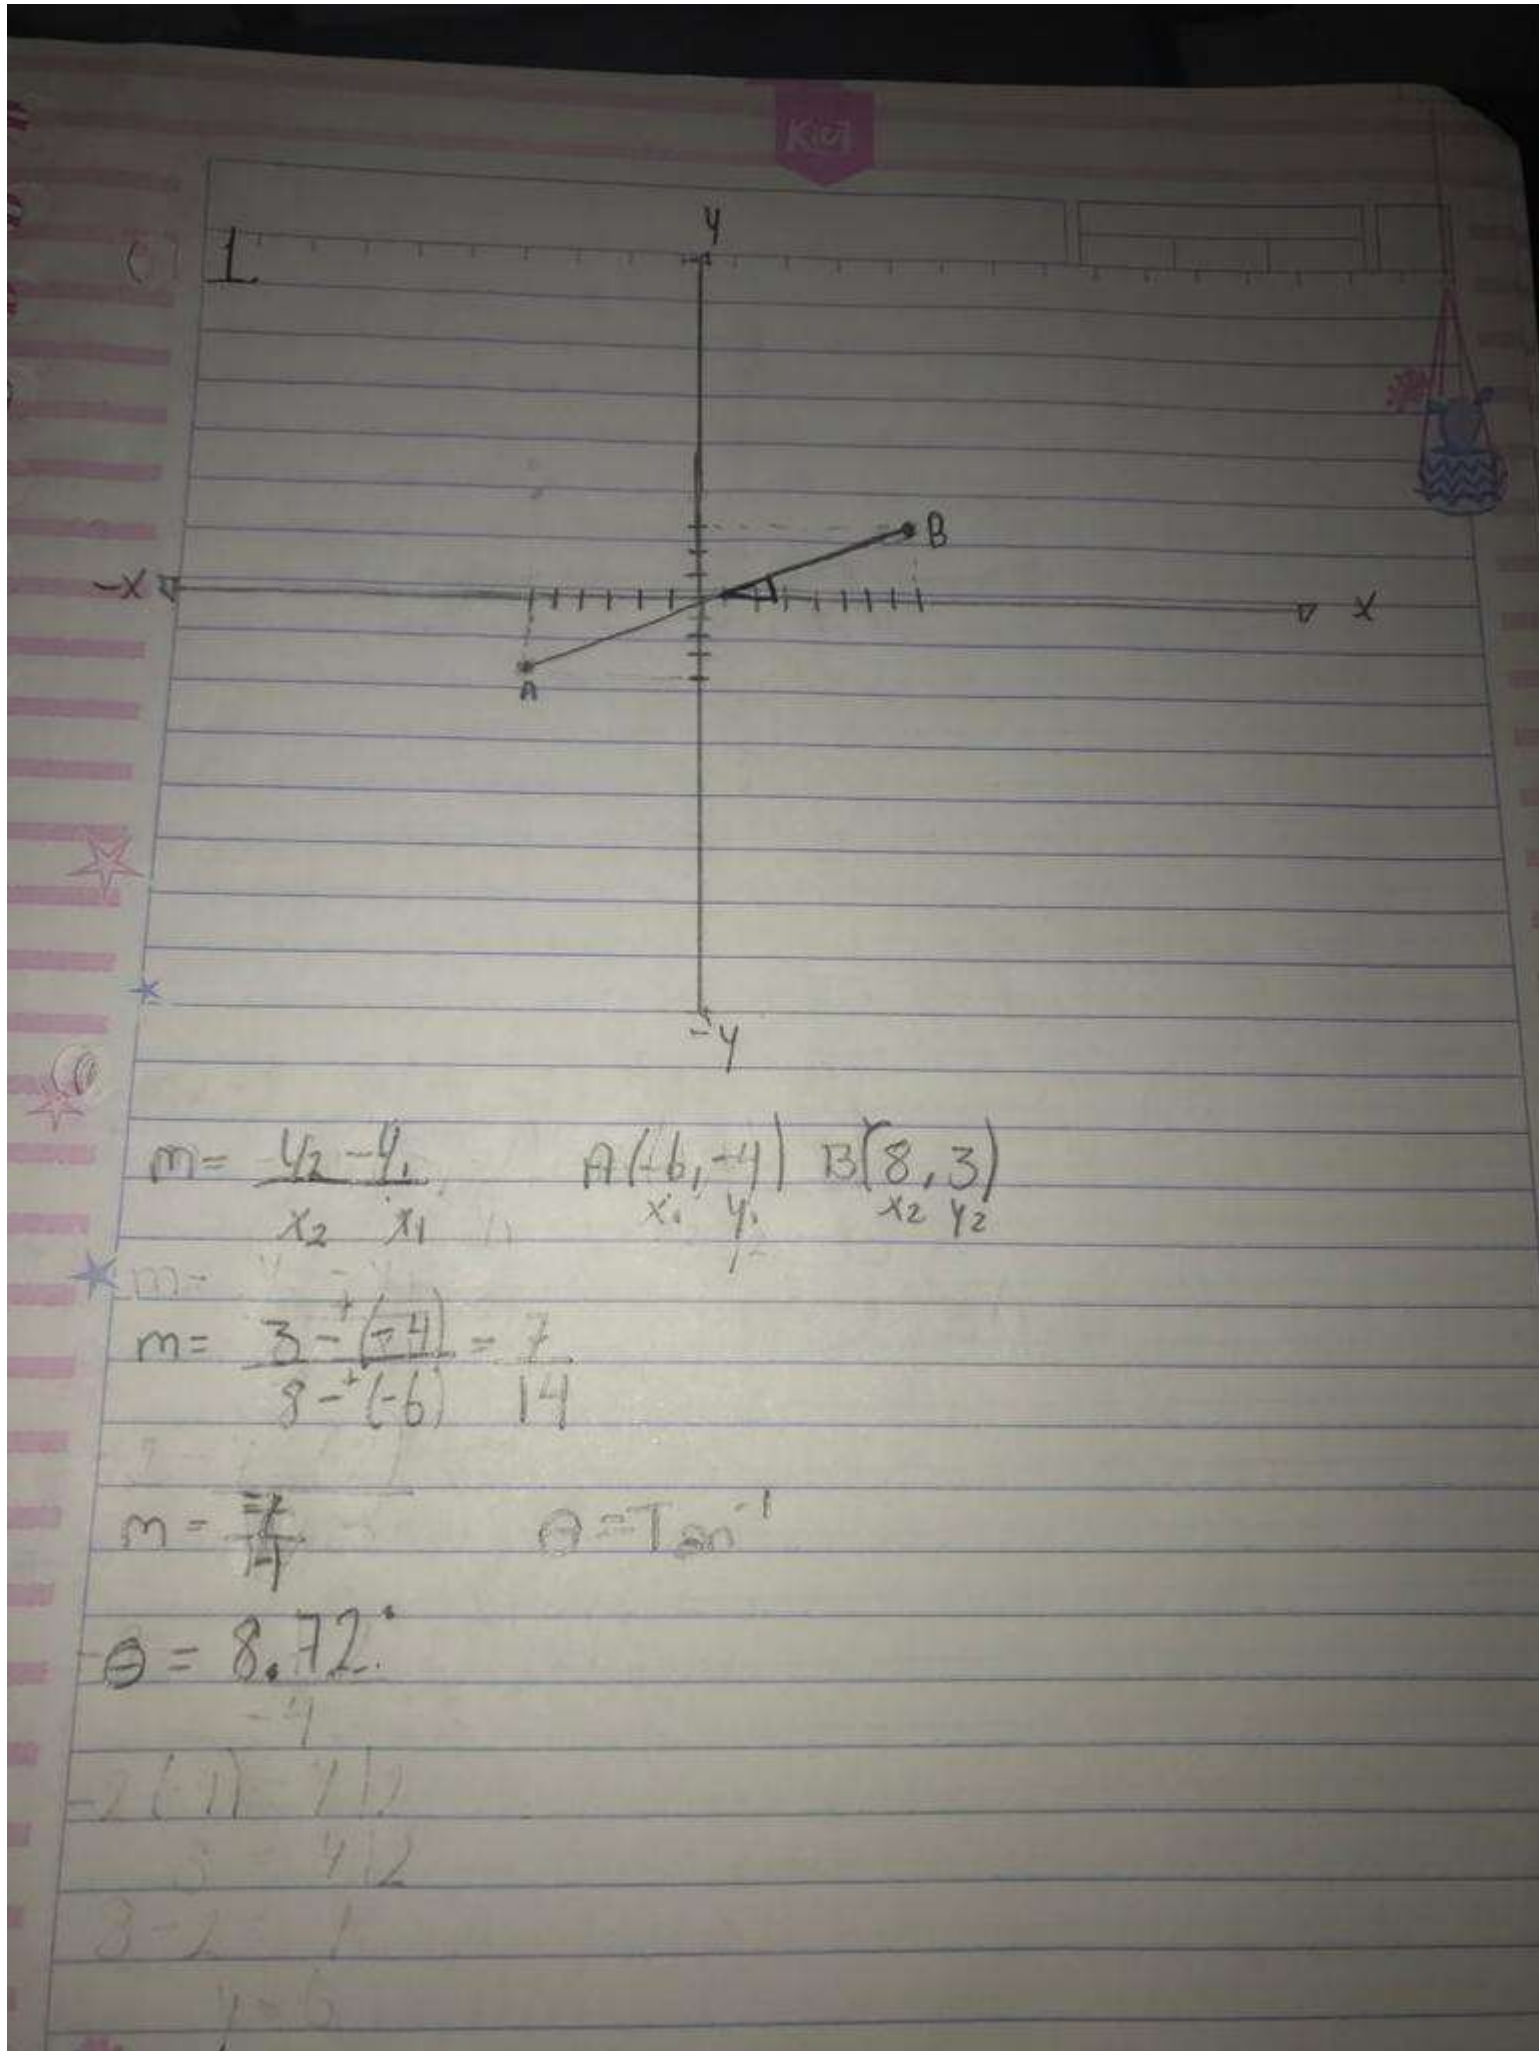 Kiut
1
y
B
-x
x
A
-y
m = y2 - y1 / x2 x1 A(-6, -4) B(8, 3)
x1 y1 x2 y2
m =
m = 3 -+ (-4) / 8 -+ (-6) = 7 / 14
m = θ = Tan^-1
θ = 8.72°